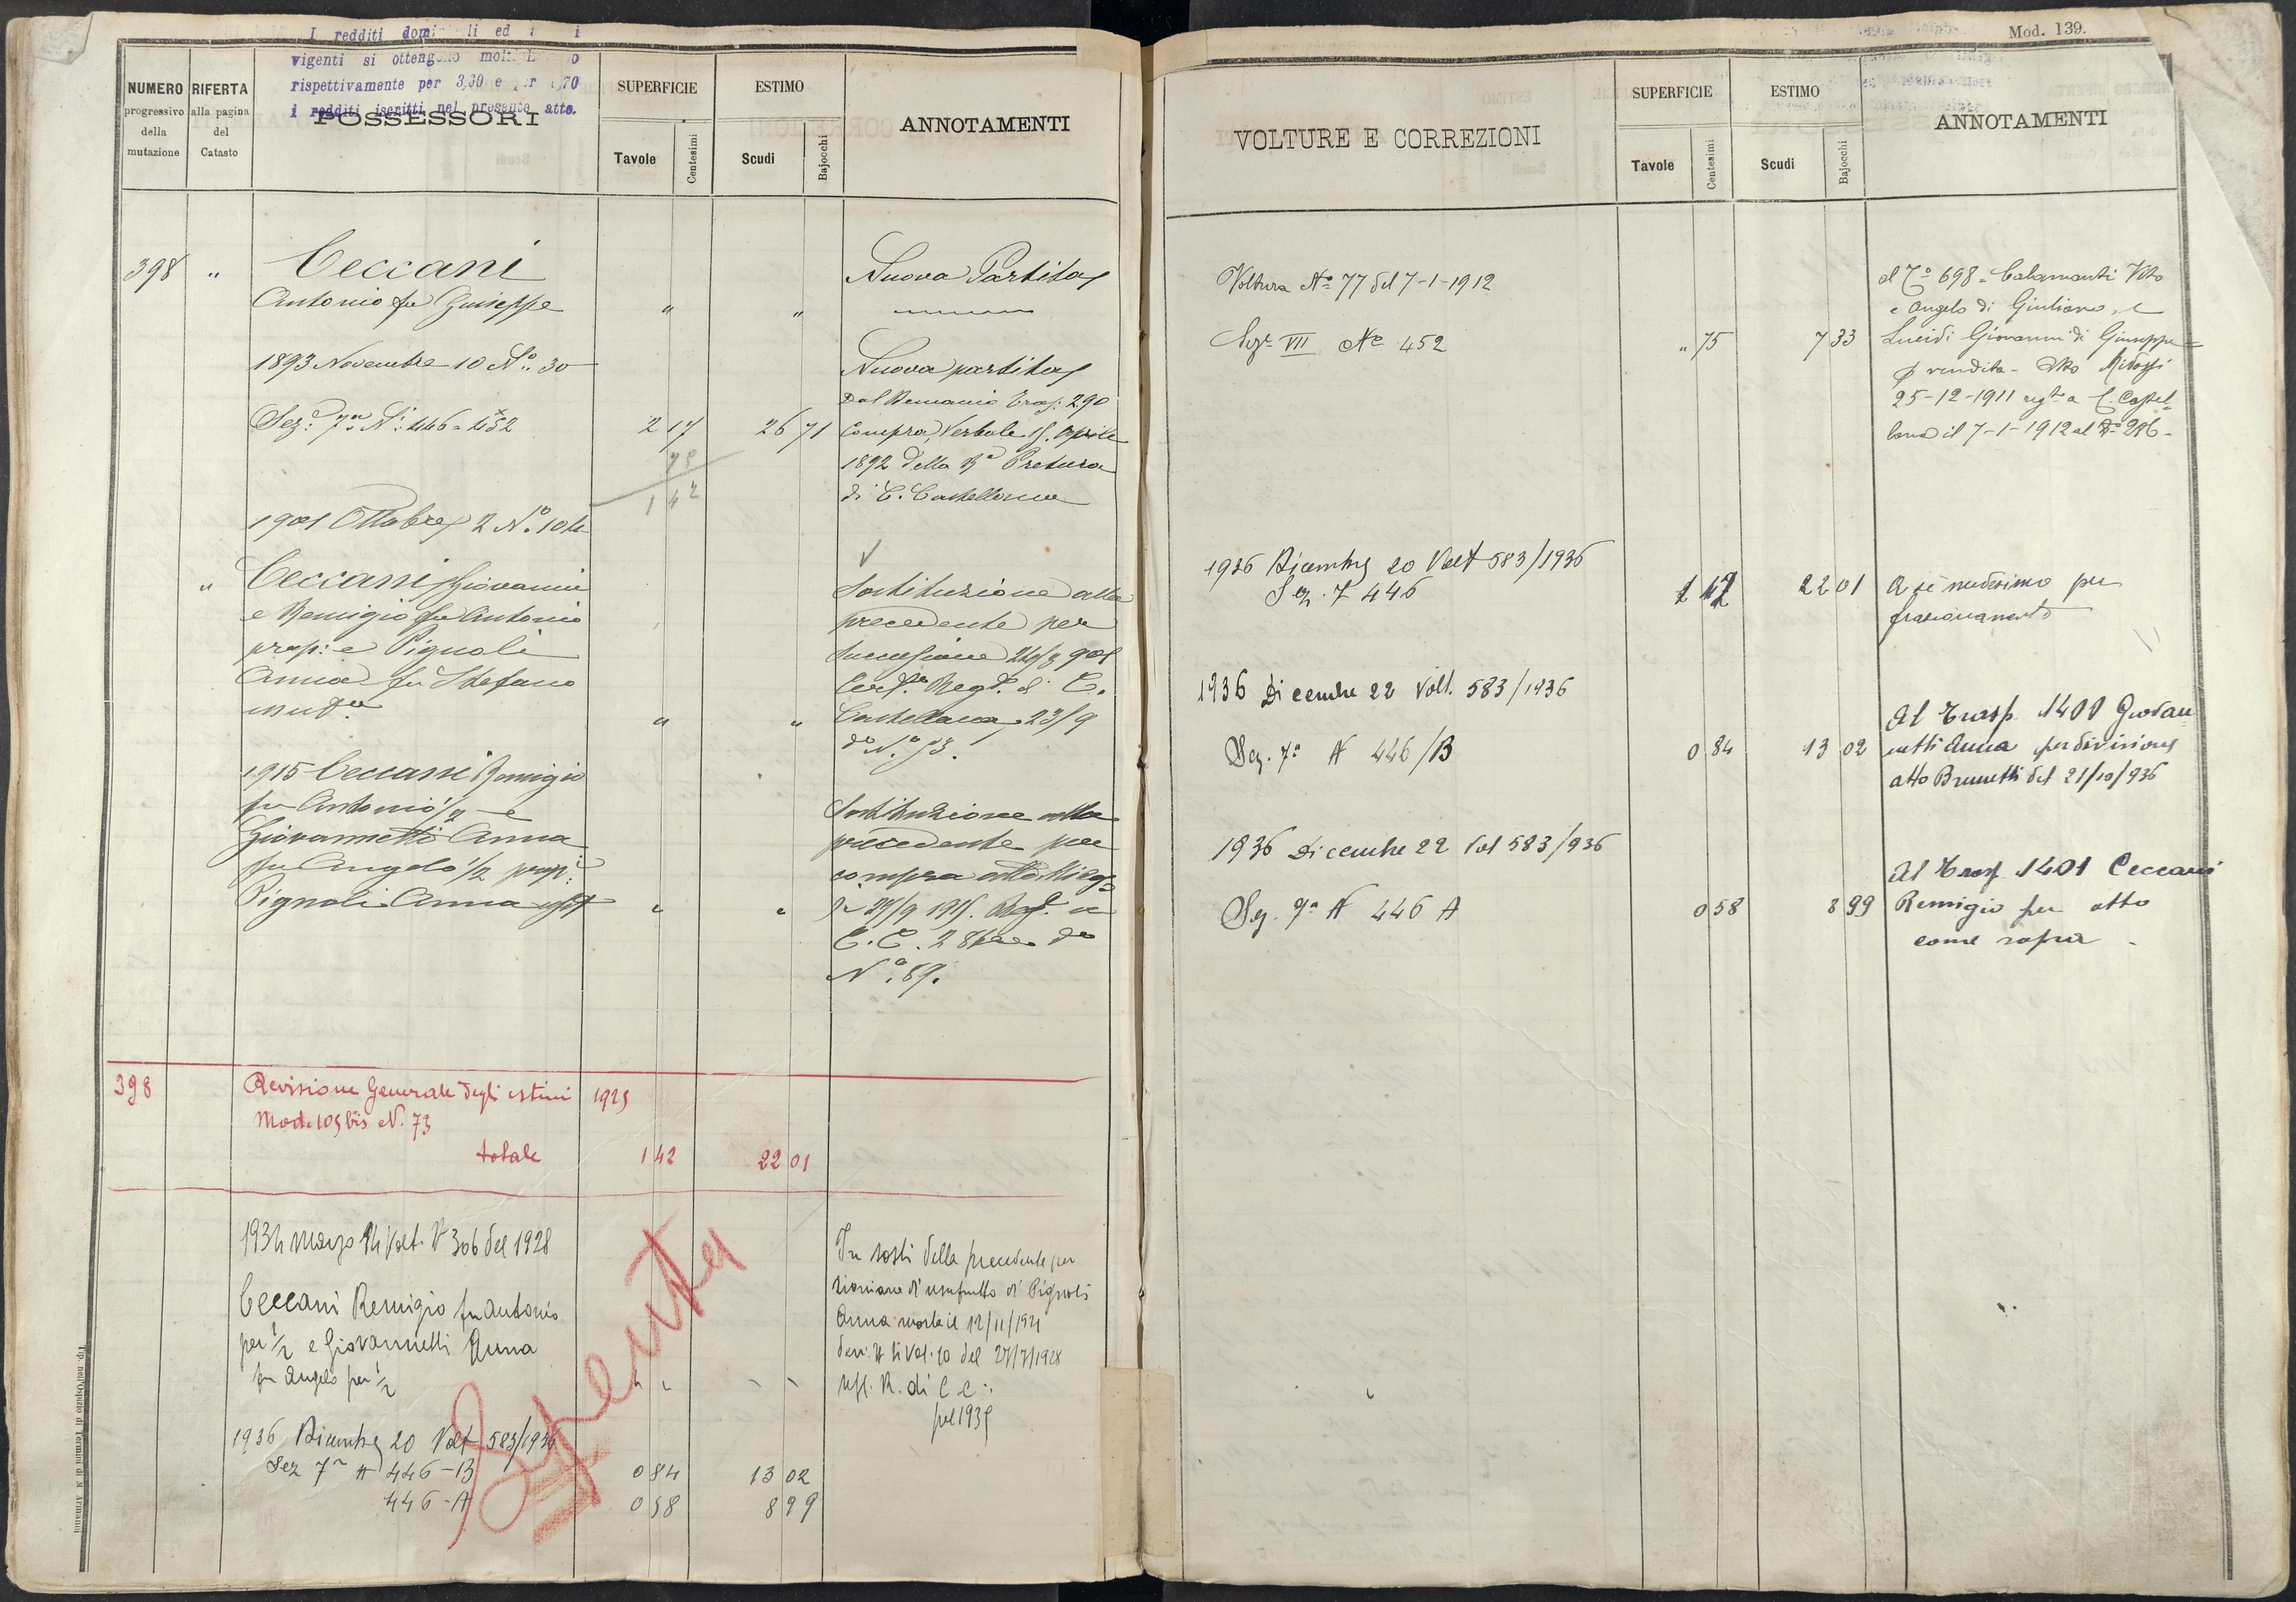 I redditi domi li ed i
vigenti si ottengono
rispettivamente per 3,30 e per ,70
i redditi iscritti nel presente atto.
NUMERO
progressivo
della
mutazione
RIFERTA
alla pagina
del
Catasto
POSSESSORI
SUPERFICIE
Tavole
Centesimi
ESTIMO
Scudi
Bajocchi
ANNOTAMENTI
398 " Ceccani Nuova Partita
Antonio fu Giuseppe " "
1893 Novembre 10 N.° 30 Nuova partita
Dal Demanio Trasp: 290
Sez.e 7a N.i 446 = 452 2 17 26 71 Compra, Verbale 15. Aprile
75 1892 della Ra Pretura
1 42 di C. Castellana
1901 Ottobre 2 N.° 104
" Ceccani Giovanni Sostituzione alla
e Remigio fu Antonio precedente per
prop: e Pignoli successione
Anna fu Stefano
usuf.a " " Castellana 23/9
1915 Ceccani Remigio
fu Antonio 1/2 e Sostituzione alla
Giovannetti Anna precedente per
fu Angelo 1/2 prop.i compra atto
Pignoli Anna usuf. " "
N.° 89.
398 Revisione Generale degli estimi 1925
Mod. 105 bis N. 73
totale 1 42 22 01
1934 Marzo 14 Volt. N 306 del 1928
In sosti della precedente per
Ceccani Remigio fu Antonio riunione d'usufrutto di Pignoli
per 1/2 e Giovannetti Anna Anna morta il 12/11/1921
fu Angelo per 1/2
uff. R. di C C.
pel 1935
1936 Dicembre 20 Volt 583/1936
Sez 7a N 446 - B 0 84 13 02
446 - A 0 58 8 99
Spenta
Tip. nell'Ospizio di Termini di N. Armanni
Mod. 139.
VOLTURE E CORREZIONI
SUPERFICIE
Tavole
Centesimi
ESTIMO
Scudi
Bajocchi
ANNOTAMENTI
Voltura N.° 77 del 7-1-1912 al T.° 698 = Calamanti Vito
e Angelo di Giuliano, e
Sez.e VII N.° 452 " 75 7 33 Lucidi Giovanni di Giuseppe =
p vendita - Atto Midossi
25-12-1911 regto a C. Castel=
lana il 7-1-1912 al N.° 286 -
1936 Dicembre 20 Volt 583/1936
Sez. 7 446 1 42 22 01 A sè medesimo per
frazionamento
1936 Dicembre 22 Volt. 583/1936
Al Trasp. 1400 Giovan
Sez. 7a N 446/B 0 84 13 02 netti Anna per divisione
atto Brunetti del 21/10/936
1936 Dicembre 22 Vol 583/936
Al Trasp 1401 Ceccani
Sez. 7a N 446 A 0 58 8 99 Remigio per atto
come sopra -